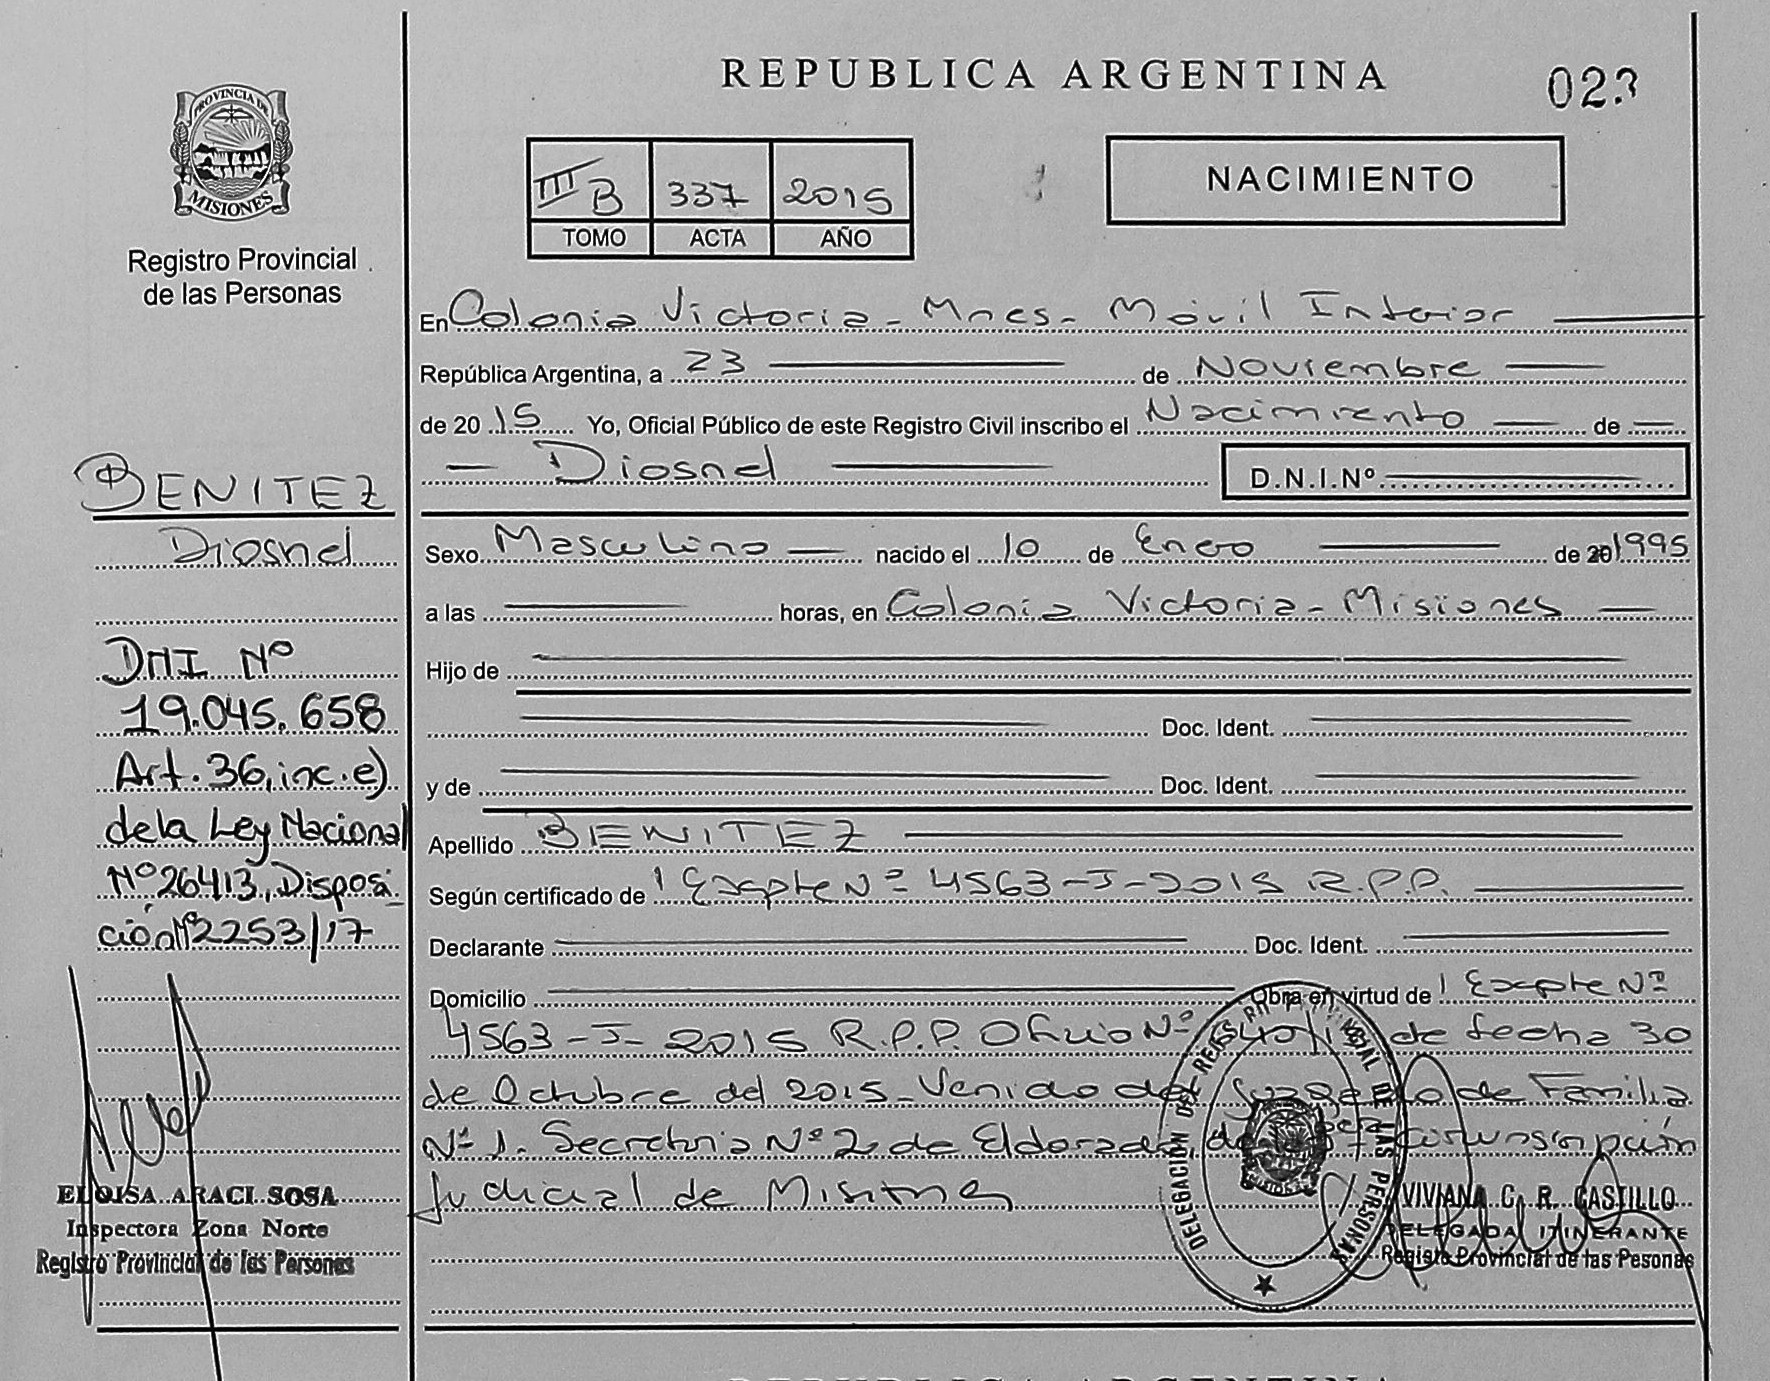 REPUBLICA ARGENTINA
023
PROVINCIA DE
MISIONES
Registro Provincial
de las Personas
III B 337 2015
TOMO ACTA AÑO
NACIMIENTO
En Colonia Victoria - Mnes - Móvil Interior
República Argentina, a 23 de Noviembre
de 2015 Yo, Oficial Público de este Registro Civil inscribo el Nacimiento de
Diosnel
D.N.I.Nº
Sexo Masculino nacido el 10 de Enero de 20 1995
a las horas, en Colonia Victoria - Misiones
Hijo de
Doc. Ident.
y de Doc. Ident.
Apellido BENITEZ
Según certificado de 1 Expte Nº 4563-J-2015 R.P.P.
Declarante Doc. Ident.
Domicilio Obra en virtud de 1 Expte Nº
4563-J-2015 R.P.P. Oficio Nº de fecha 30
de Octubre del 2015 - Venido del Juzgado de Familia
Nº 1. Secretaria Nº 2 de Eldorado, de Circunscripción
Judicial de Misiones
BENITEZ
Diosnel
DNI Nº
19.045.658
Art. 36, inc. e)
de la Ley Nacional
Nº 26413, Disposi-
ción Nº 2253/17
ELOISA ARACI SOSA
Inspectora Zona Norte
Registro Provincial de las Personas
DELEGACIÓN DEL DE LAS PERSONAS
VIVIANA C. R. CASTILLO
DELEGADA ITINERANTE
Registro Provincial de las Pesonas
REPUBLICA ARGENTINA